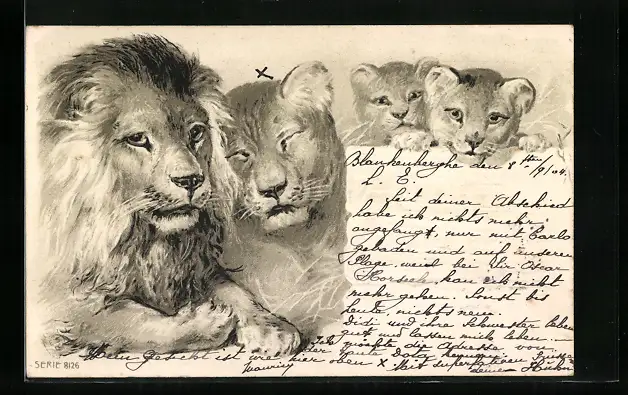 Blankenberghe den 8ten/9/04.
L. E.
Seit deiner Abschied
habe ich nichts mehr
angefangt, nur mit Carlo
gebaden und auf unseren
Plage, weist bei Sir Oscar
kan ich nicht
mehr gehen. Sonst bis
heute nichts neues.
Didi und ihre Schwester leben
gut und lassen mich leben.
Ich möchte die Adresse von
der Tante
Mein Gesicht ist wie hier oben X. Mit
deine
SERIE 8126